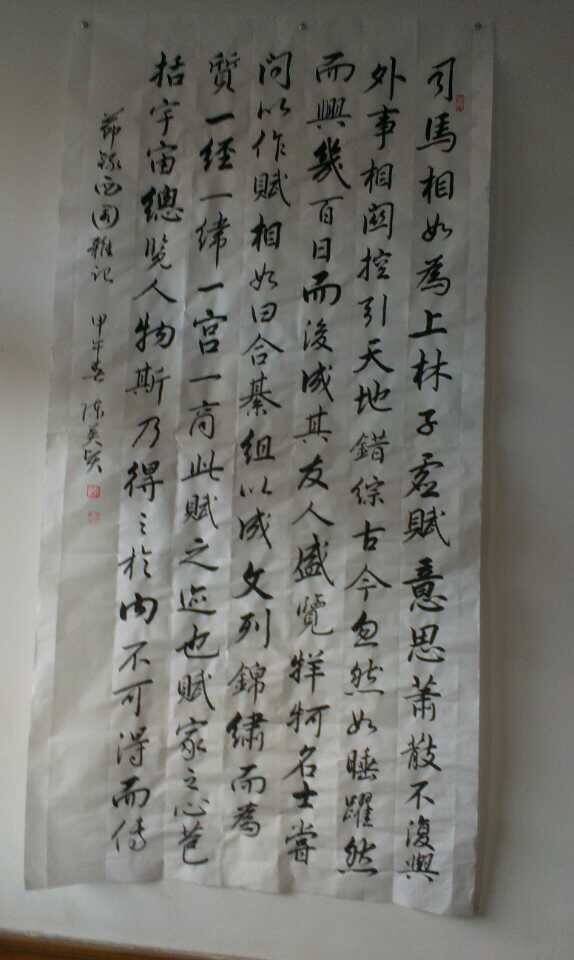 司馬相如為上林子虛賦意思蕭散不復與
外事相関控引天地錯綜古今忽然如睡躍然
而興幾百日而後成其友人盛覽牂牁名士嘗
問以作賦相如曰合綦組以成文列錦繡而為
質一經一緯一宮一商此賦之迹也賦家之心苞
括宇宙總覽人物斯乃得之於內不可得而傳
節錄西園雜记 甲午春 陈英